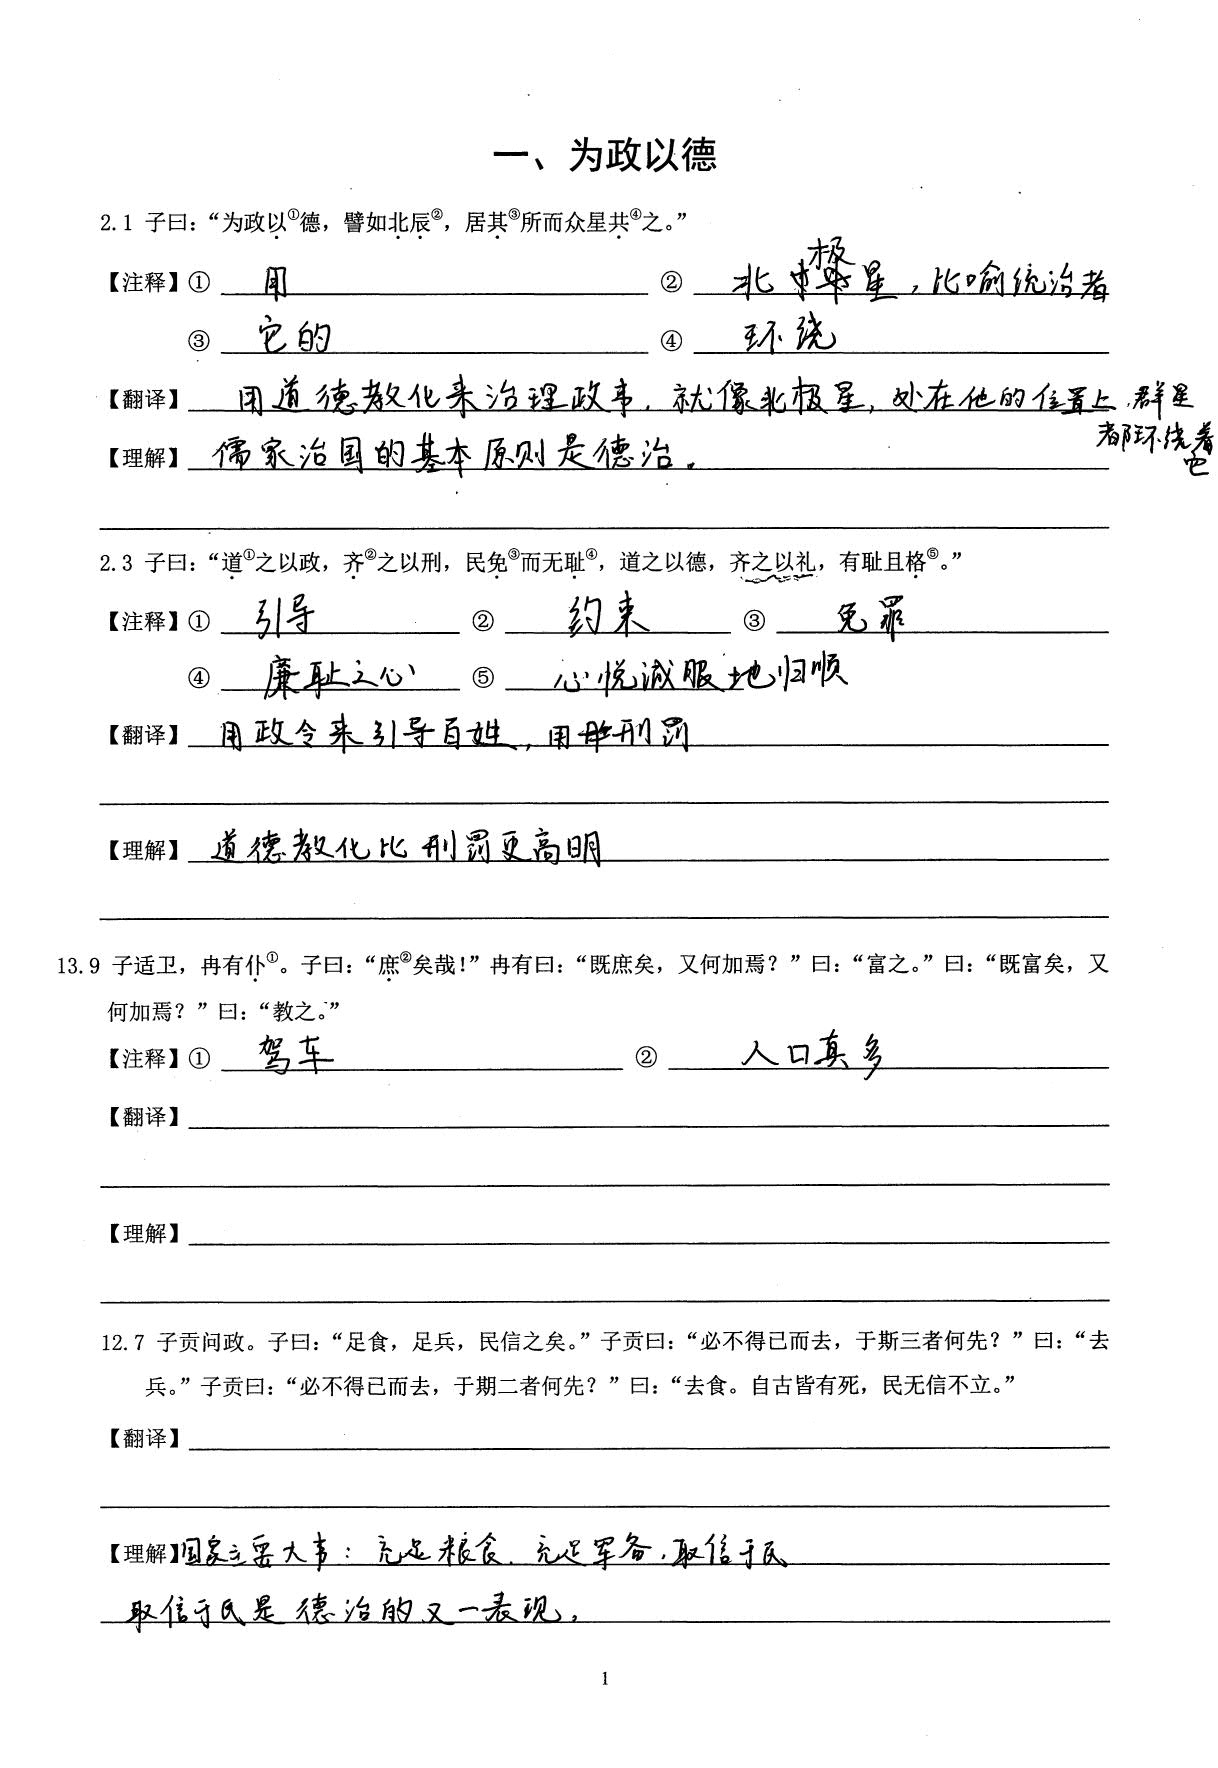 一、为政以德
2.1 子曰：“为政以①德，譬如北辰②，居其③所而众星共④之。”
【注释】① 用 ② 北极星，比喻统治者
③ 它的 ④ 环绕
【翻译】用道德教化来治理政事，就像北极星，处在他的位置上，群星
都环绕着
它
【理解】儒家治国的基本原则是德治。
2.3 子曰：“道①之以政，齐②之以刑，民免③而无耻④，道之以德，齐之以礼，有耻且格⑤。”
【注释】① 引导 ② 约束 ③ 免罪
④ 廉耻之心 ⑤ 心悦诚服地归顺
【翻译】用政令来引导百姓，用刑罚
【理解】道德教化比刑罚更高明
13.9 子适卫，冉有仆①。子曰：“庶②矣哉！”冉有曰：“既庶矣，又何加焉？”曰：“富之。”曰：“既富矣，又
何加焉？”曰：“教之。”
【注释】① 驾车 ② 人口真多
【翻译】
【理解】
12.7 子贡问政。子曰：“足食，足兵，民信之矣。”子贡曰：“必不得已而去，于斯三者何先？”曰：“去
兵。”子贡曰：“必不得已而去，于期二者何先？”曰：“去食。自古皆有死，民无信不立。”
【翻译】
【理解】国家主要大事：充足粮食，充足军备，取信于民
取信于民是德治的又一表现。
1